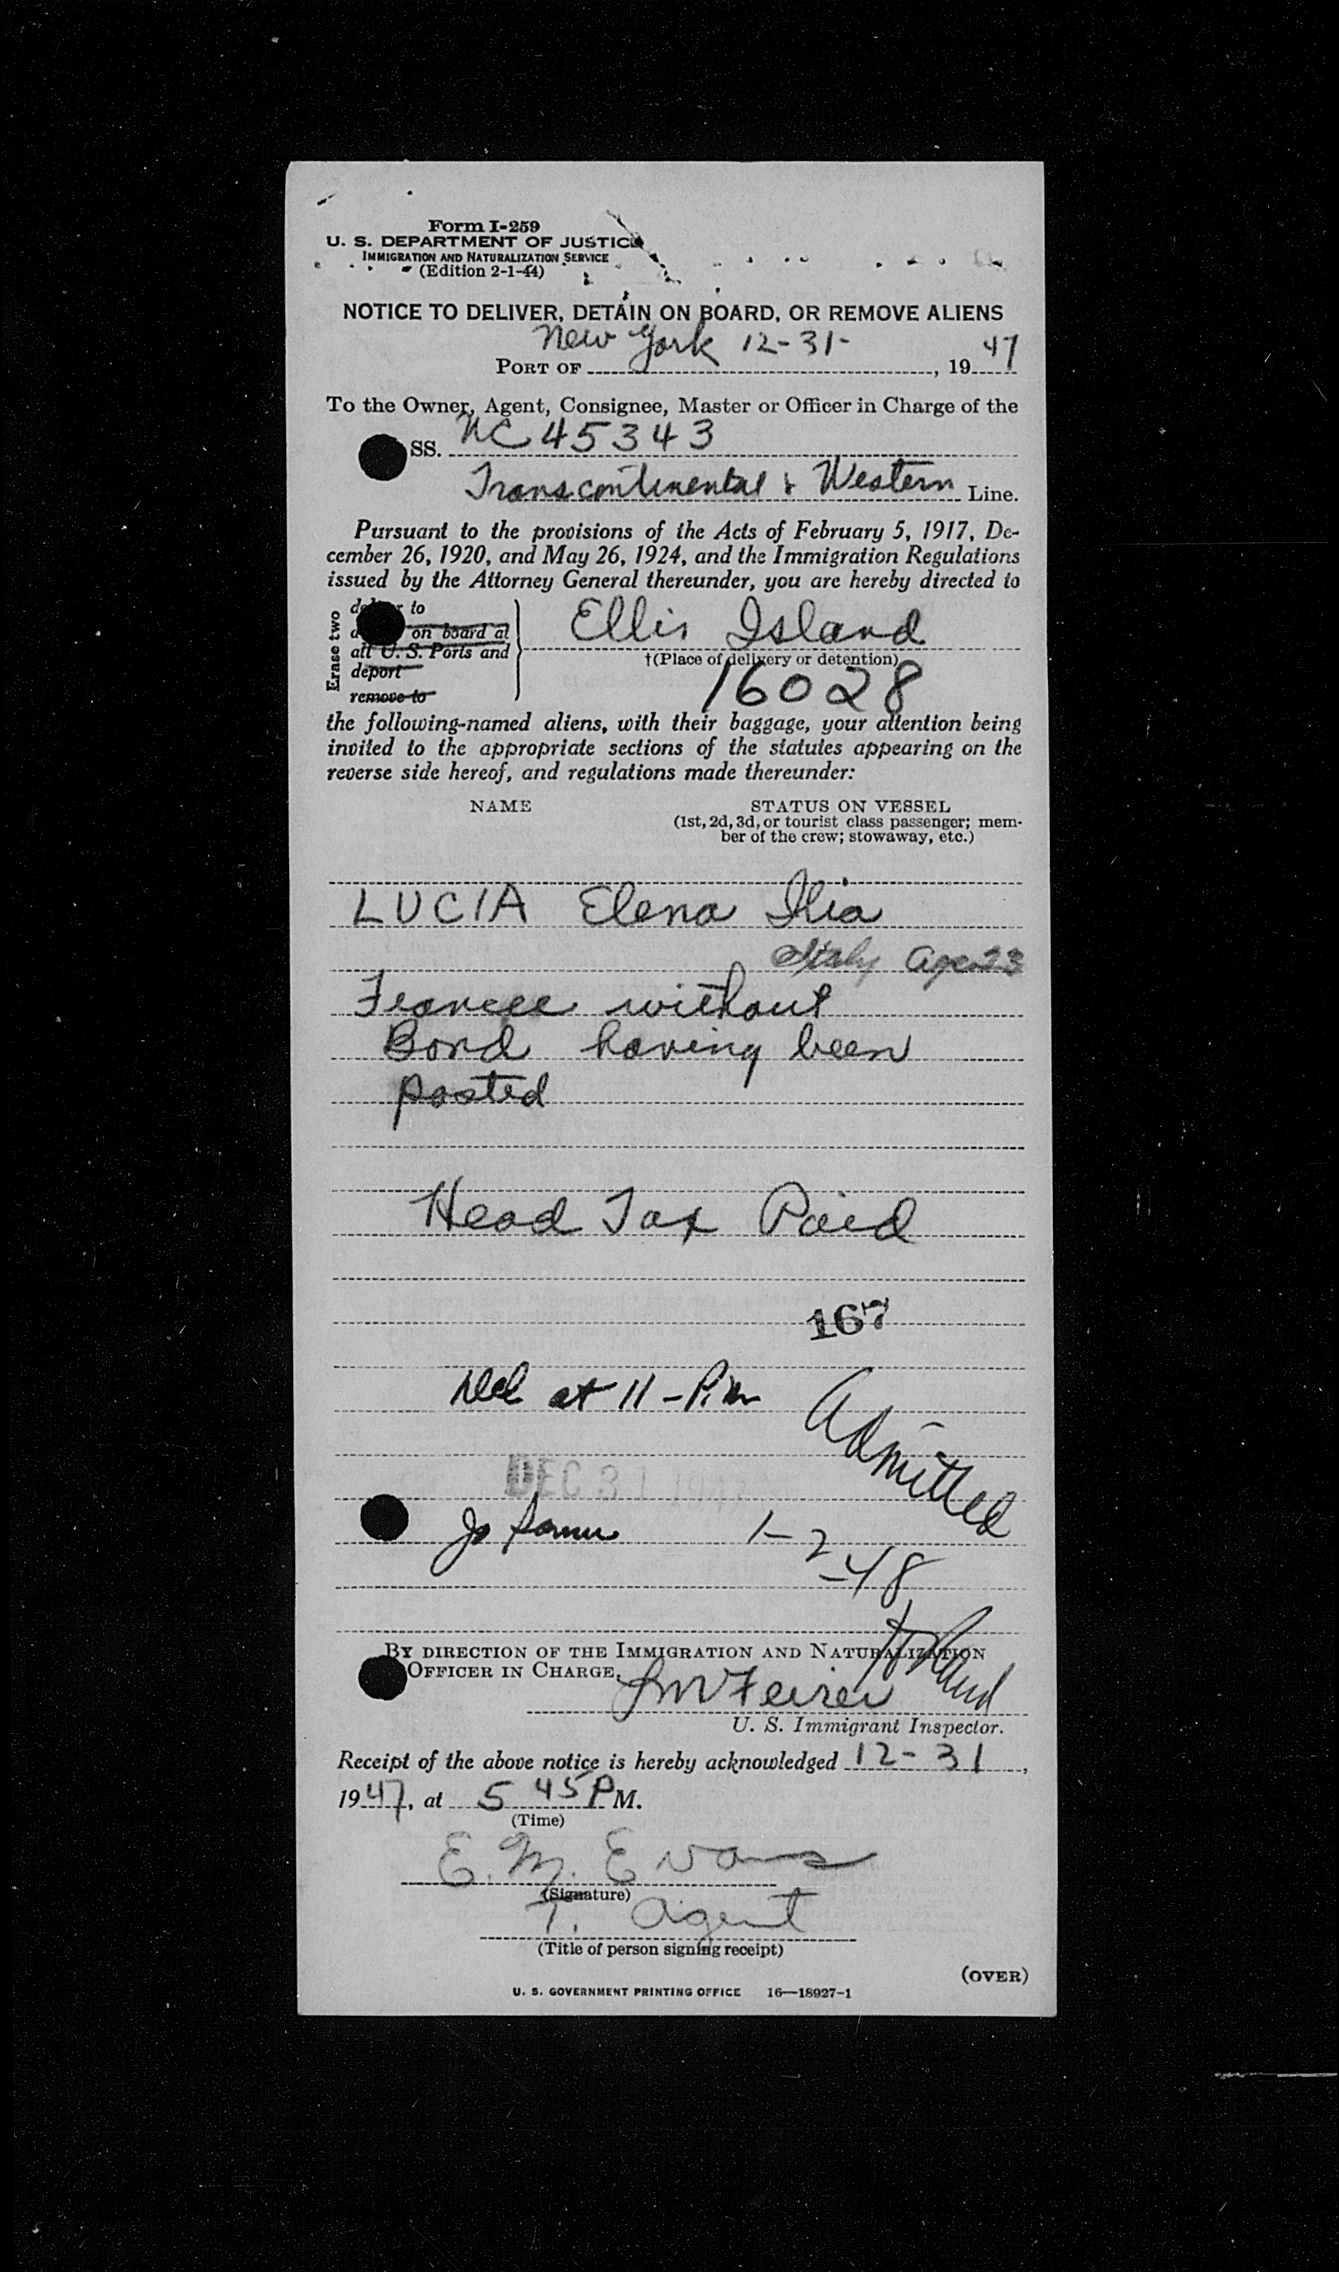 Form I-259
U. S. DEPARTMENT OF JUSTICE
IMMIGRATION AND NATURALIZATION SERVICE
(Edition 2-1-44)
NOTICE TO DELIVER, DETAIN ON BOARD, OR REMOVE ALIENS
New York 12-31-
PORT OF , 19 47
To the Owner, Agent, Consignee, Master or Officer in Charge of the
SS. NC 45343
Transcontinental & Western Line.
Pursuant to the provisions of the Acts of February 5, 1917, De-
cember 26, 1920, and May 26, 1924, and the Immigration Regulations
issued by the Attorney General thereunder, you are hereby directed to
Erase two
to
on board at
all U. S. Ports and
deport
remove to
Ellis Island
†(Place of delivery or detention)
16028
the following-named aliens, with their baggage, your attention being
invited to the appropriate sections of the statutes appearing on the
reverse side hereof, and regulations made thereunder:
NAME STATUS ON VESSEL
(1st, 2d, 3d, or tourist class passenger; mem-
ber of the crew; stowaway, etc.)
LUCIA Elena Ilia
Italy Age 23
Fiancee without
Bond having been
posted
Head Tax Paid
167
Del at 11 - P.m
Admitted
DEC 31
1-2-48
BY DIRECTION OF THE IMMIGRATION AND NATURALIZATION
OFFICER IN CHARGE,
U. S. Immigrant Inspector.
Receipt of the above notice is hereby acknowledged 12-31,
1947, at 5 45 P M.
(Time)
E. M. Evans
(Signature)
T. Agent
(Title of person signing receipt)
(OVER)
U. S. GOVERNMENT PRINTING OFFICE 16—18927-1